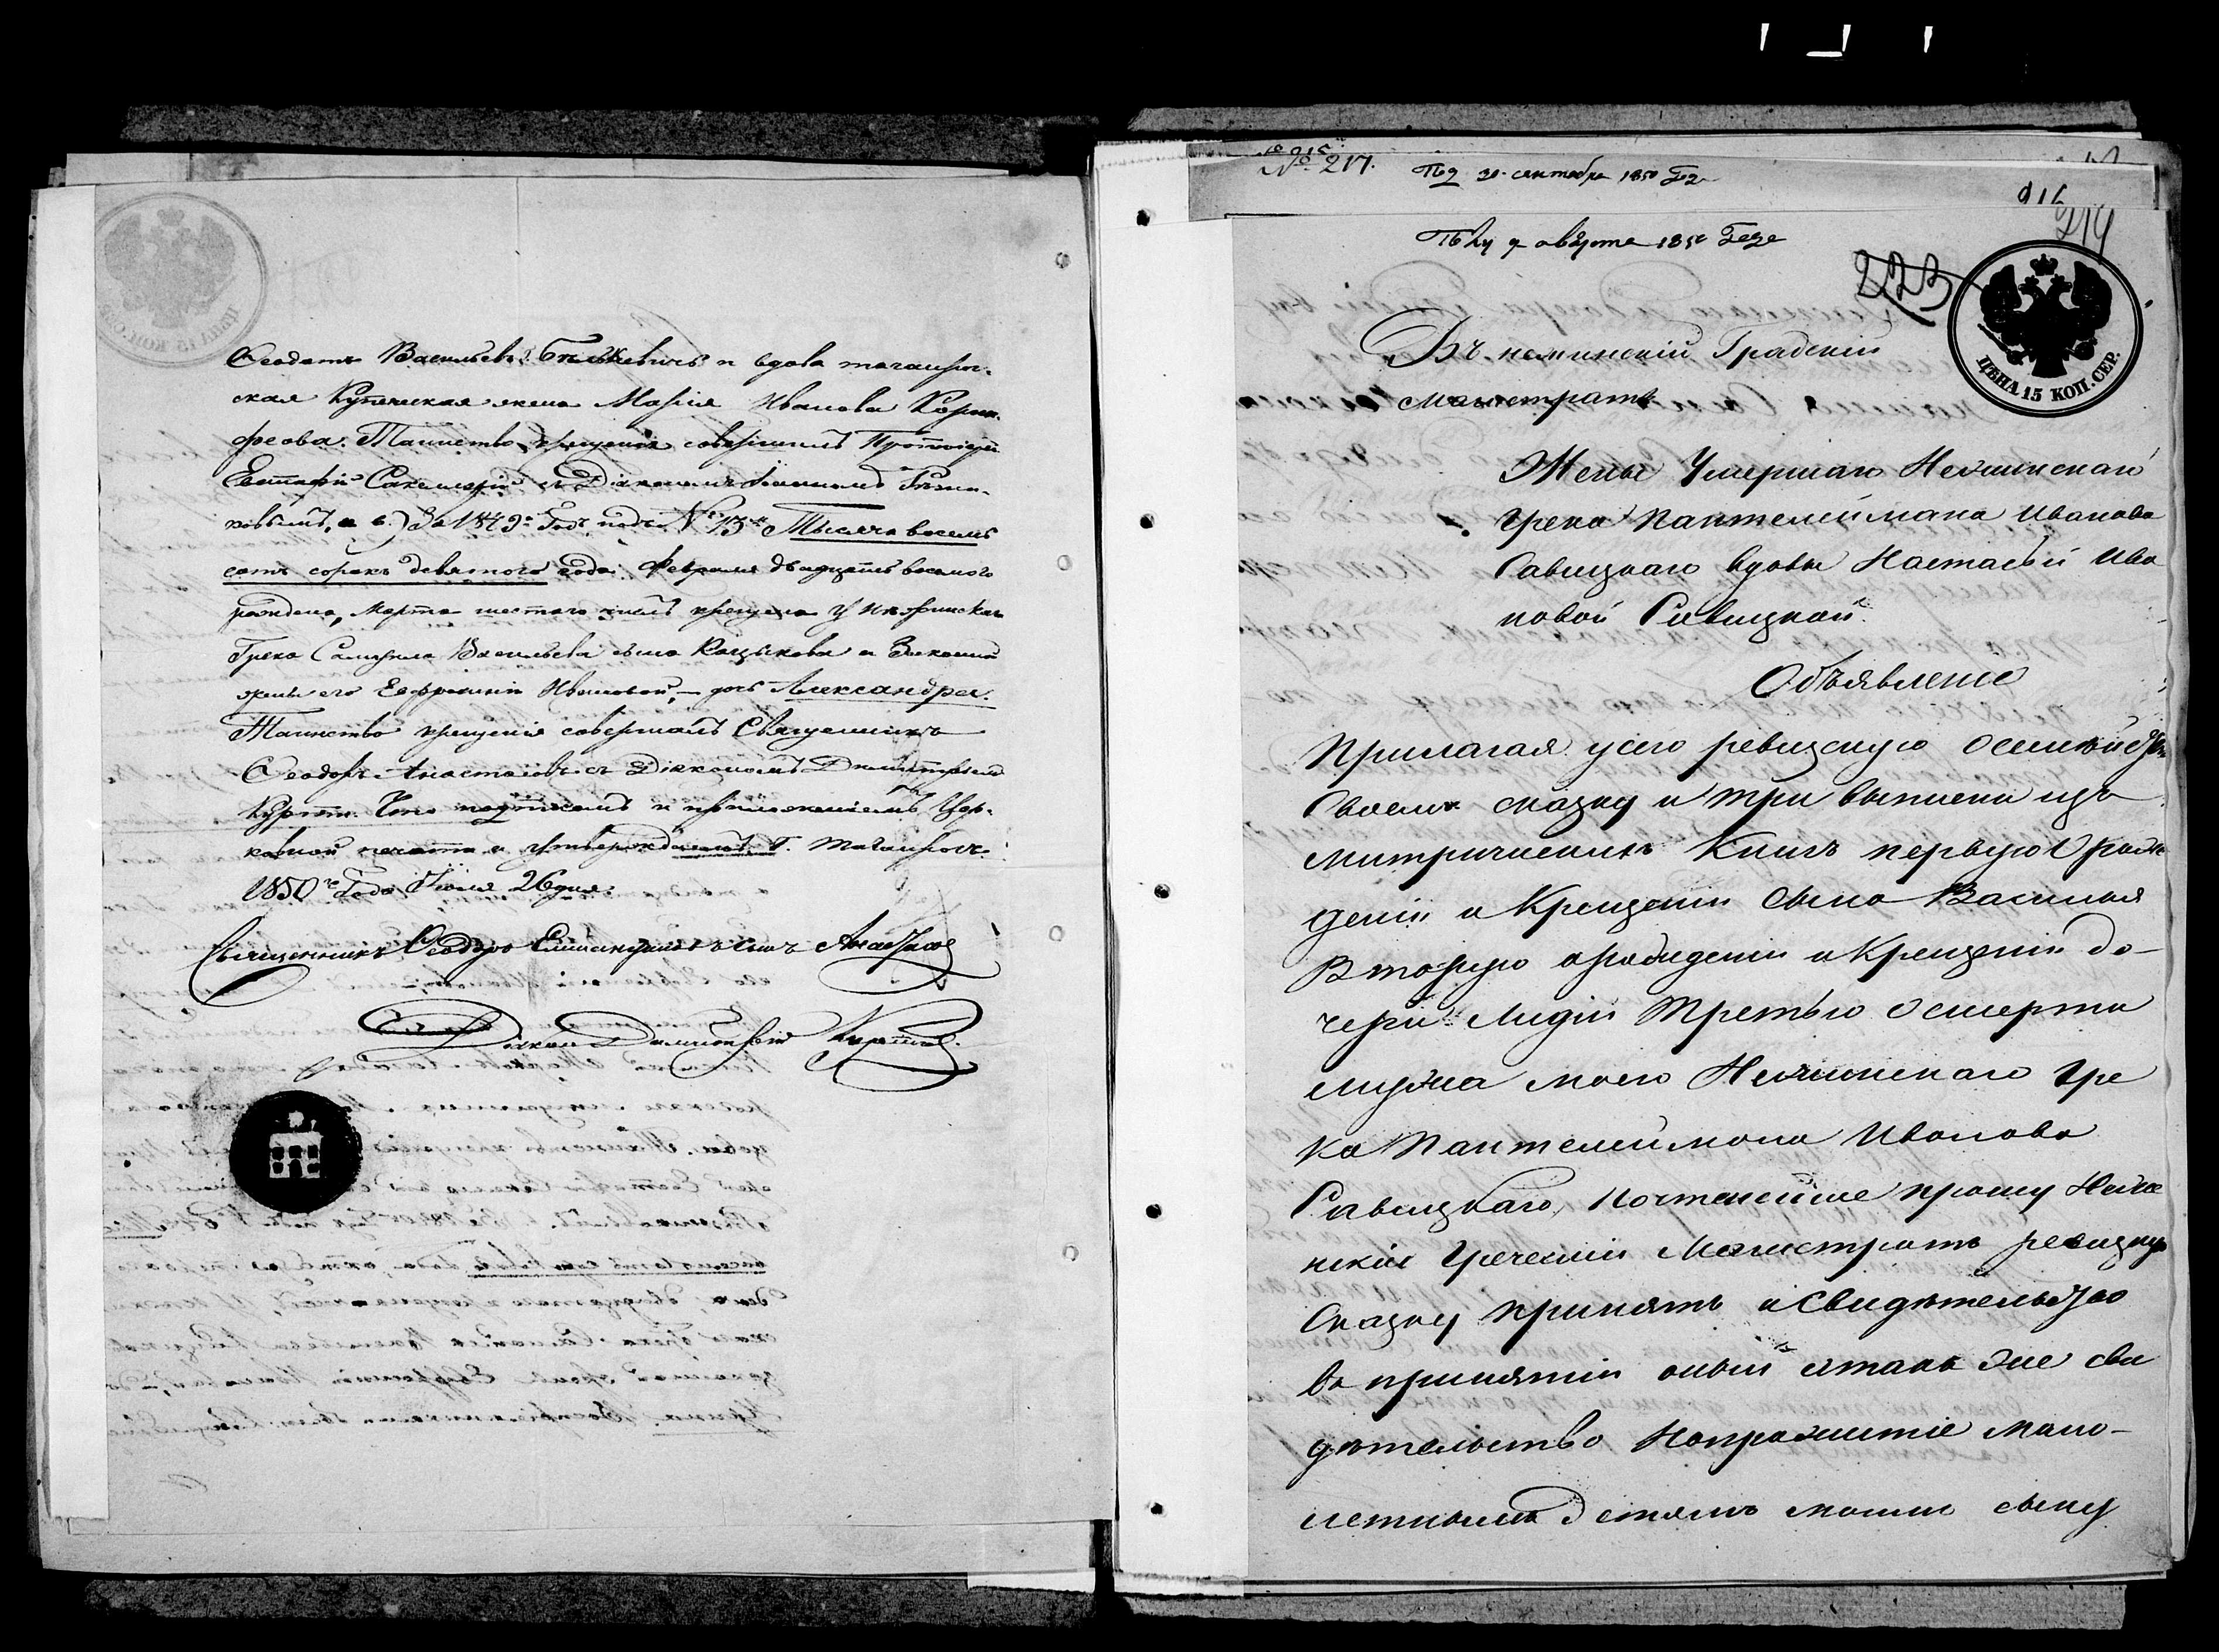 Ѳеодотъ Васильевъ Бѣлькевичъ и вдова таганрог-
ская Купеческая жена Марія Иванова
Таинство крещенія совершилъ Протоіерей
Евстафій съ Діакономъ
6.) За 1849й Годъ подъ № 13м Тысяча восемь
сотъ сорокъ девятого года Февраля двадцать восьмого
рождена, Марта шестаго числъ крещена у Нѣжинскаго
Грека Самуила Васильева сына Кацыкова и Законной
жены его Евфросиніи Ивановой, дочь Александра.
Таинство крещенія совершалъ Священникъ
Ѳеодоръ съ Діакономъ Димитріемъ
Что подписомъ и приложеніемъ Цер-
ковной печати и утверждаемъ Г. Таганрогъ.
1850го Года Іюля 26 дня.
Священникъ Ѳеодоръ сынъ
Діаконъ Димитрій
№ 217.
30 сентября 1850 Года
августа 1850 Года
223
219
ЦѢНА 15 КОП. СЕР.
Въ нежинскій Градскій
Магистратъ
Жены Умершаго Нежинскаго
Грека Пантелеймона Иванова
Савицкаго вдовы Настасьи Ива
новой Савицкой.
Объявленіе
Прилагая у сего ревизскую о семействѣ
своемъ сказку и три выписки изъ
митрическихъ Книгъ первую о рож
деніи и Крещеніи Сына Василья
Вторую о рожденіи и Крещеніи до-
чери Лидіи Третью о смерти
мужа моего Нежинскаго Гре
ка Пантелеймона Иванова
Савицкаго, Почтенейше прошу Нежи
нскій Греческій Магистратъ ревизскую
Сказку принять и Свидѣтельство
въ принятіи оной и такъ же сви
дѣтельство на прожитіе мало-
летнымъ детямъ моимъ сыну